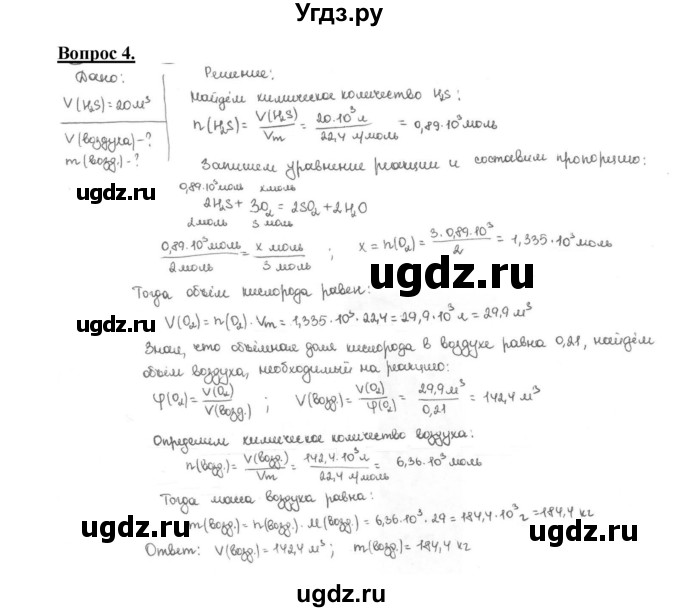 Угдз.ру
Вопрос 4.
Дано:
V(H₂S)=20м³
V(воздуха)-?
m(возд.)-?
Решение:
Найдём химическое количество H₂S:
n(H₂S)= V(H₂S)/Vm = 20·10³л/22,4 л/моль = 0,89·10³моль
Запишем уравнение реакции и составим пропорцию:
0,89·10³моль x моль
2H₂S+ 3O₂ = 2SO₂ +2H₂O
2моль 3 моль
0,89·10³моль/2моль = x моль/3 моль ; x = n(O₂) = 3·0,89·10³/2 = 1,335·10³моль
Тогда объём кислорода равен:
V(O₂)= n(O₂)·Vm= 1,335·10³·22,4=29,9·10³л=29,9м³
Зная, что объёмная доля кислорода в воздухе равна 0,21, найдём
объём воздуха, необходимый на реакцию:
φ(O₂)= V(O₂)/V(возд.) ; V(возд.)= V(O₂)/φ(O₂) = 29,9м³/0,21 = 142,4м³
Определим химическое количество воздуха:
n(возд.)= V(возд.)/Vm = 142,4·10³л/22,4 л/моль = 6,36·10³моль
Тогда масса воздуха равна:
m(возд.)= n(возд.)·M(возд.)=6,36·10³·29=184,4·10³г=184,4 кг
Ответ: V(возд.)=142,4м³; m(возд.)=184,4 кг
ugdz.ru
ugdz.ru
ugdz.ru
ugdz.ru
ugdz.ru
ugdz.ru
ugdz.ru
ugdz.ru
ugdz.ru
ugdz.ru
ugdz.ru